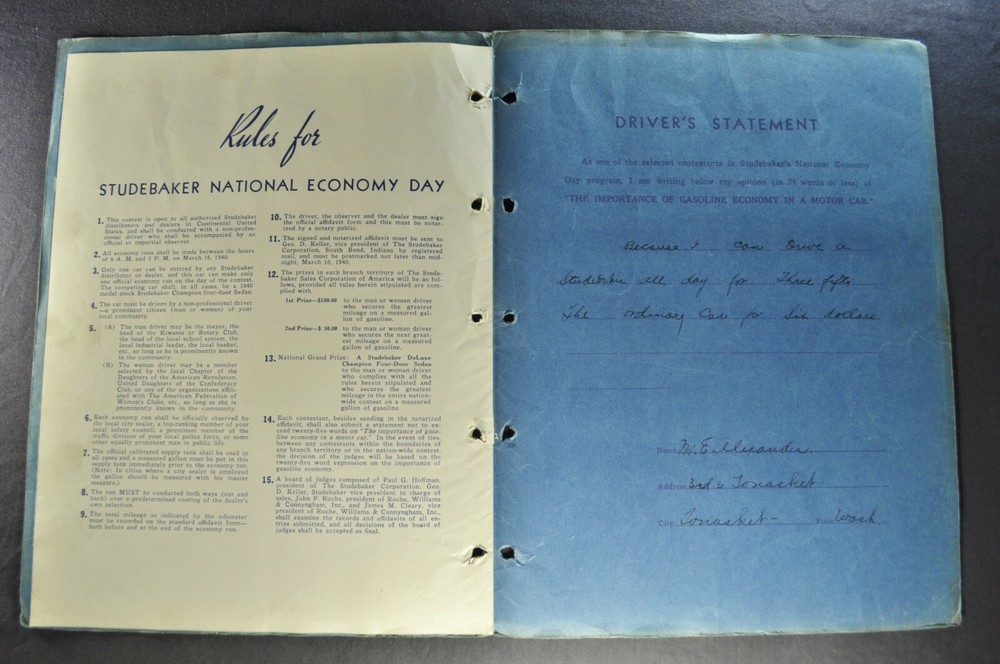 Rules for
STUDEBAKER NATIONAL ECONOMY DAY
1. This contest is open to all authorized Studebaker
distributors and dealers in Continental United
States, and shall be conducted with a non-profes-
sional driver who shall be accompanied by an
official or impartial observer.
2. All economy runs shall be made between the hours
of 8 A. M. and 5 P. M. on March 16, 1940.
3. Only one car can be entered by any Studebaker
distributor or dealer, and this car can make only
one official economy run on the day of the contest.
The competing car shall, in all cases, be a 1940
model stock Studebaker Champion four-door Sedan.
4. The car must be driven by a non-professional driver
—a prominent citizen (man or woman) of your
local community.
5. (A) The man driver may be the mayor, the
head of the Kiwanis or Rotary Club,
the head of the local school system, the
local industrial leader, the local banker,
etc., so long as he is prominently known
in the community.
(B) The woman driver may be a member
selected by the local Chapter of the
Daughters of the American Revolution,
United Daughters of the Confederacy
Club, or any of the organizations affili-
ated with The American Federation of
Women's Clubs, etc., so long as she is
prominently known in the community.
6. Each economy run shall be officially observed by
the local city sealer, a top-ranking member of your
local safety council, a prominent member of the
traffic division of your local police force, or some
other equally prominent man in public life.
7. The official calibrated supply tank shall be used in
all cases and a measured gallon must be put in this
supply tank immediately prior to the economy run.
(Note: In cities where a city sealer is employed
the gallon should be measured with his master
measure.)
8. The run MUST be conducted both ways (out and
back) over a predetermined routing of the dealer's
own selection.
9. The total mileage as indicated by the odometer
must be recorded on the standard affidavit form—
both before and at the end of the economy run.
10. The driver, the observer and the dealer must sign
the official affidavit form and this must be notar-
ized by a notary public.
11. The signed and notarized affidavit must be sent to
Geo. D. Keller, vice president of The Studebaker
Corporation, South Bend, Indiana by registered
mail, and must be postmarked not later than mid-
night, March 16, 1940.
12. The prizes in each branch territory of The Stude-
baker Sales Corporation of America will be as fol-
lows, provided all rules herein stipulated are com-
plied with.
1st Prize—$100.00 to the man or woman driver
who secures the greatest
mileage on a measured gal-
lon of gasoline.
2nd Prize—$ 50.00 to the man or woman driver
who secures the next great-
est mileage on a measured
gallon of gasoline.
13. National Grand Prize: A Studebaker DeLuxe
Champion Four-Door Sedan
to the man or woman driver
who complies with all the
rules herein stipulated and
who secures the greatest
mileage in the entire nation-
wide contest on a measured
gallon of gasoline.
14. Each contestant, besides sending in the notarized
affidavit, shall also submit a statement not to ex-
ceed twenty-five words on "The importance of gaso-
line economy in a motor car." In the event of ties,
between any contestants within the boundaries of
any branch territory or in the nation-wide contest,
the decision of the judges will be based on the
twenty-five word expression on the importance of
gasoline economy.
15. A board of judges composed of Paul G. Hoffman,
president of The Studebaker Corporation, Geo.
D. Keller, Studebaker vice president in charge of
sales, John P. Roche, president of Roche, Williams
& Cunnyngham, Inc., and James M. Cleary, vice
president of Roche, Williams & Cunnyngham, Inc.,
shall examine the records and affidavits of all en-
tries submitted, and all decisions of the board of
judges shall be accepted as final.
DRIVER'S STATEMENT
As one of the selected contestants in Studebaker's National Economy
Day program, I am writing below my opinion (in 25 words or less) of
"THE IMPORTANCE OF GASOLINE ECONOMY IN A MOTOR CAR."
Because I can Drive a
Studebaker all day for Three fifty
the ordinary Car for Six dollars
Name M. E. Alexander
Address 3rd Tonasket
City Tonasket - State Wash